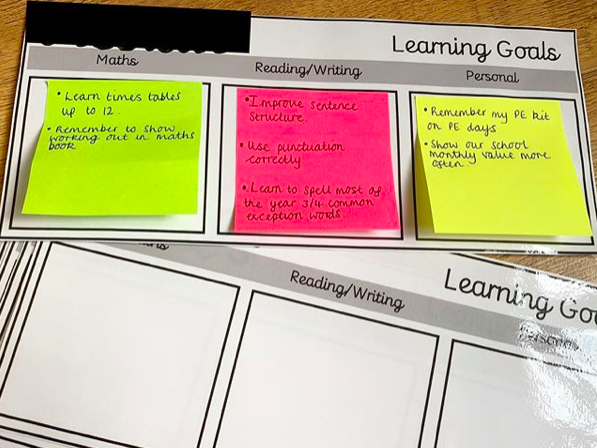 Learning Goals
Maths
Reading/Writing
Personal
• Learn times tables
up to 12
• Remember to show
working out in maths
book
• Improve sentence
structure.
• Use punctuation
correctly
• Learn to spell most of
the year 3/4 common
exception words.
• Remember my PE kit
on PE days
• Show our school
monthly value more
often
Learning Go
Reading/Writing
Personal